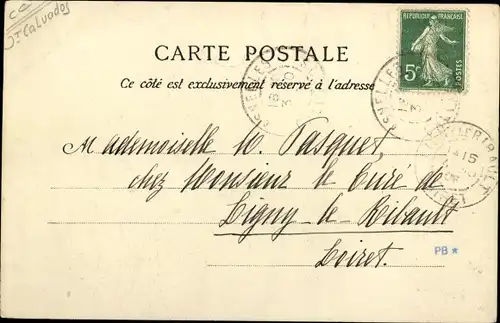 CC
Jt Calvados
RÉPUBLIQUE FRANÇAISE
5c
POSTES
CARTE POSTALE
Ce côté est exclusivement réservé à l'adresse
15
Mademoiselle M. Pasquet,
chez Monsieur le Curé de
Ligny-le-Ribault
Loiret.
PB *